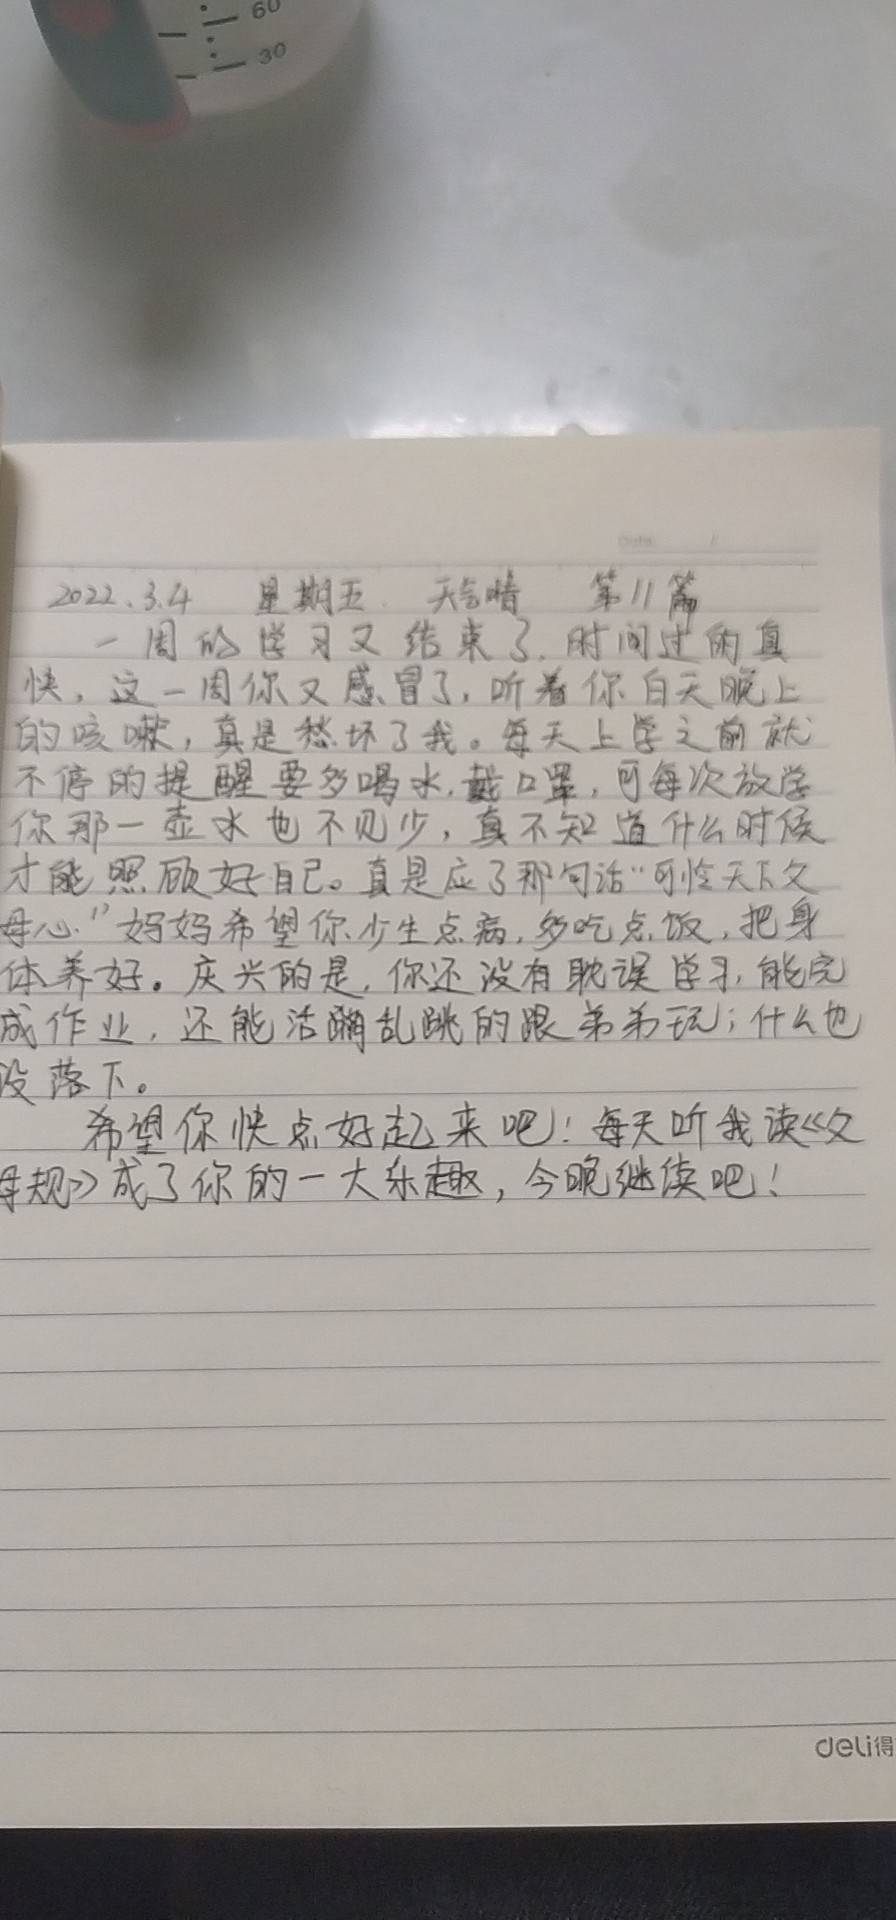 60
30
Date: /
2022.3.4 星期五. 天气晴 第11篇
一周的学习又结束了.时间过的真
快，这一周你又感冒了，听着你白天晚上
的咳嗽，真是愁坏了我。每天上学之前就
不停的提醒要多喝水.戴口罩，可每次放学
你那一壶水也不见少，真不知道什么时候
才能照顾好自己。真是应了那句话“可怜天下父
母心.”妈妈希望你少生点病,多吃点饭,把身
体养好。庆兴的是,你还没有耽误学习,能完
成作业,还能活蹦乱跳的跟弟弟玩;什么也
没落下。
希望你快点好起来吧!每天听我读《父
母规》成了你的一大乐趣,今晚继续吧!
deli得